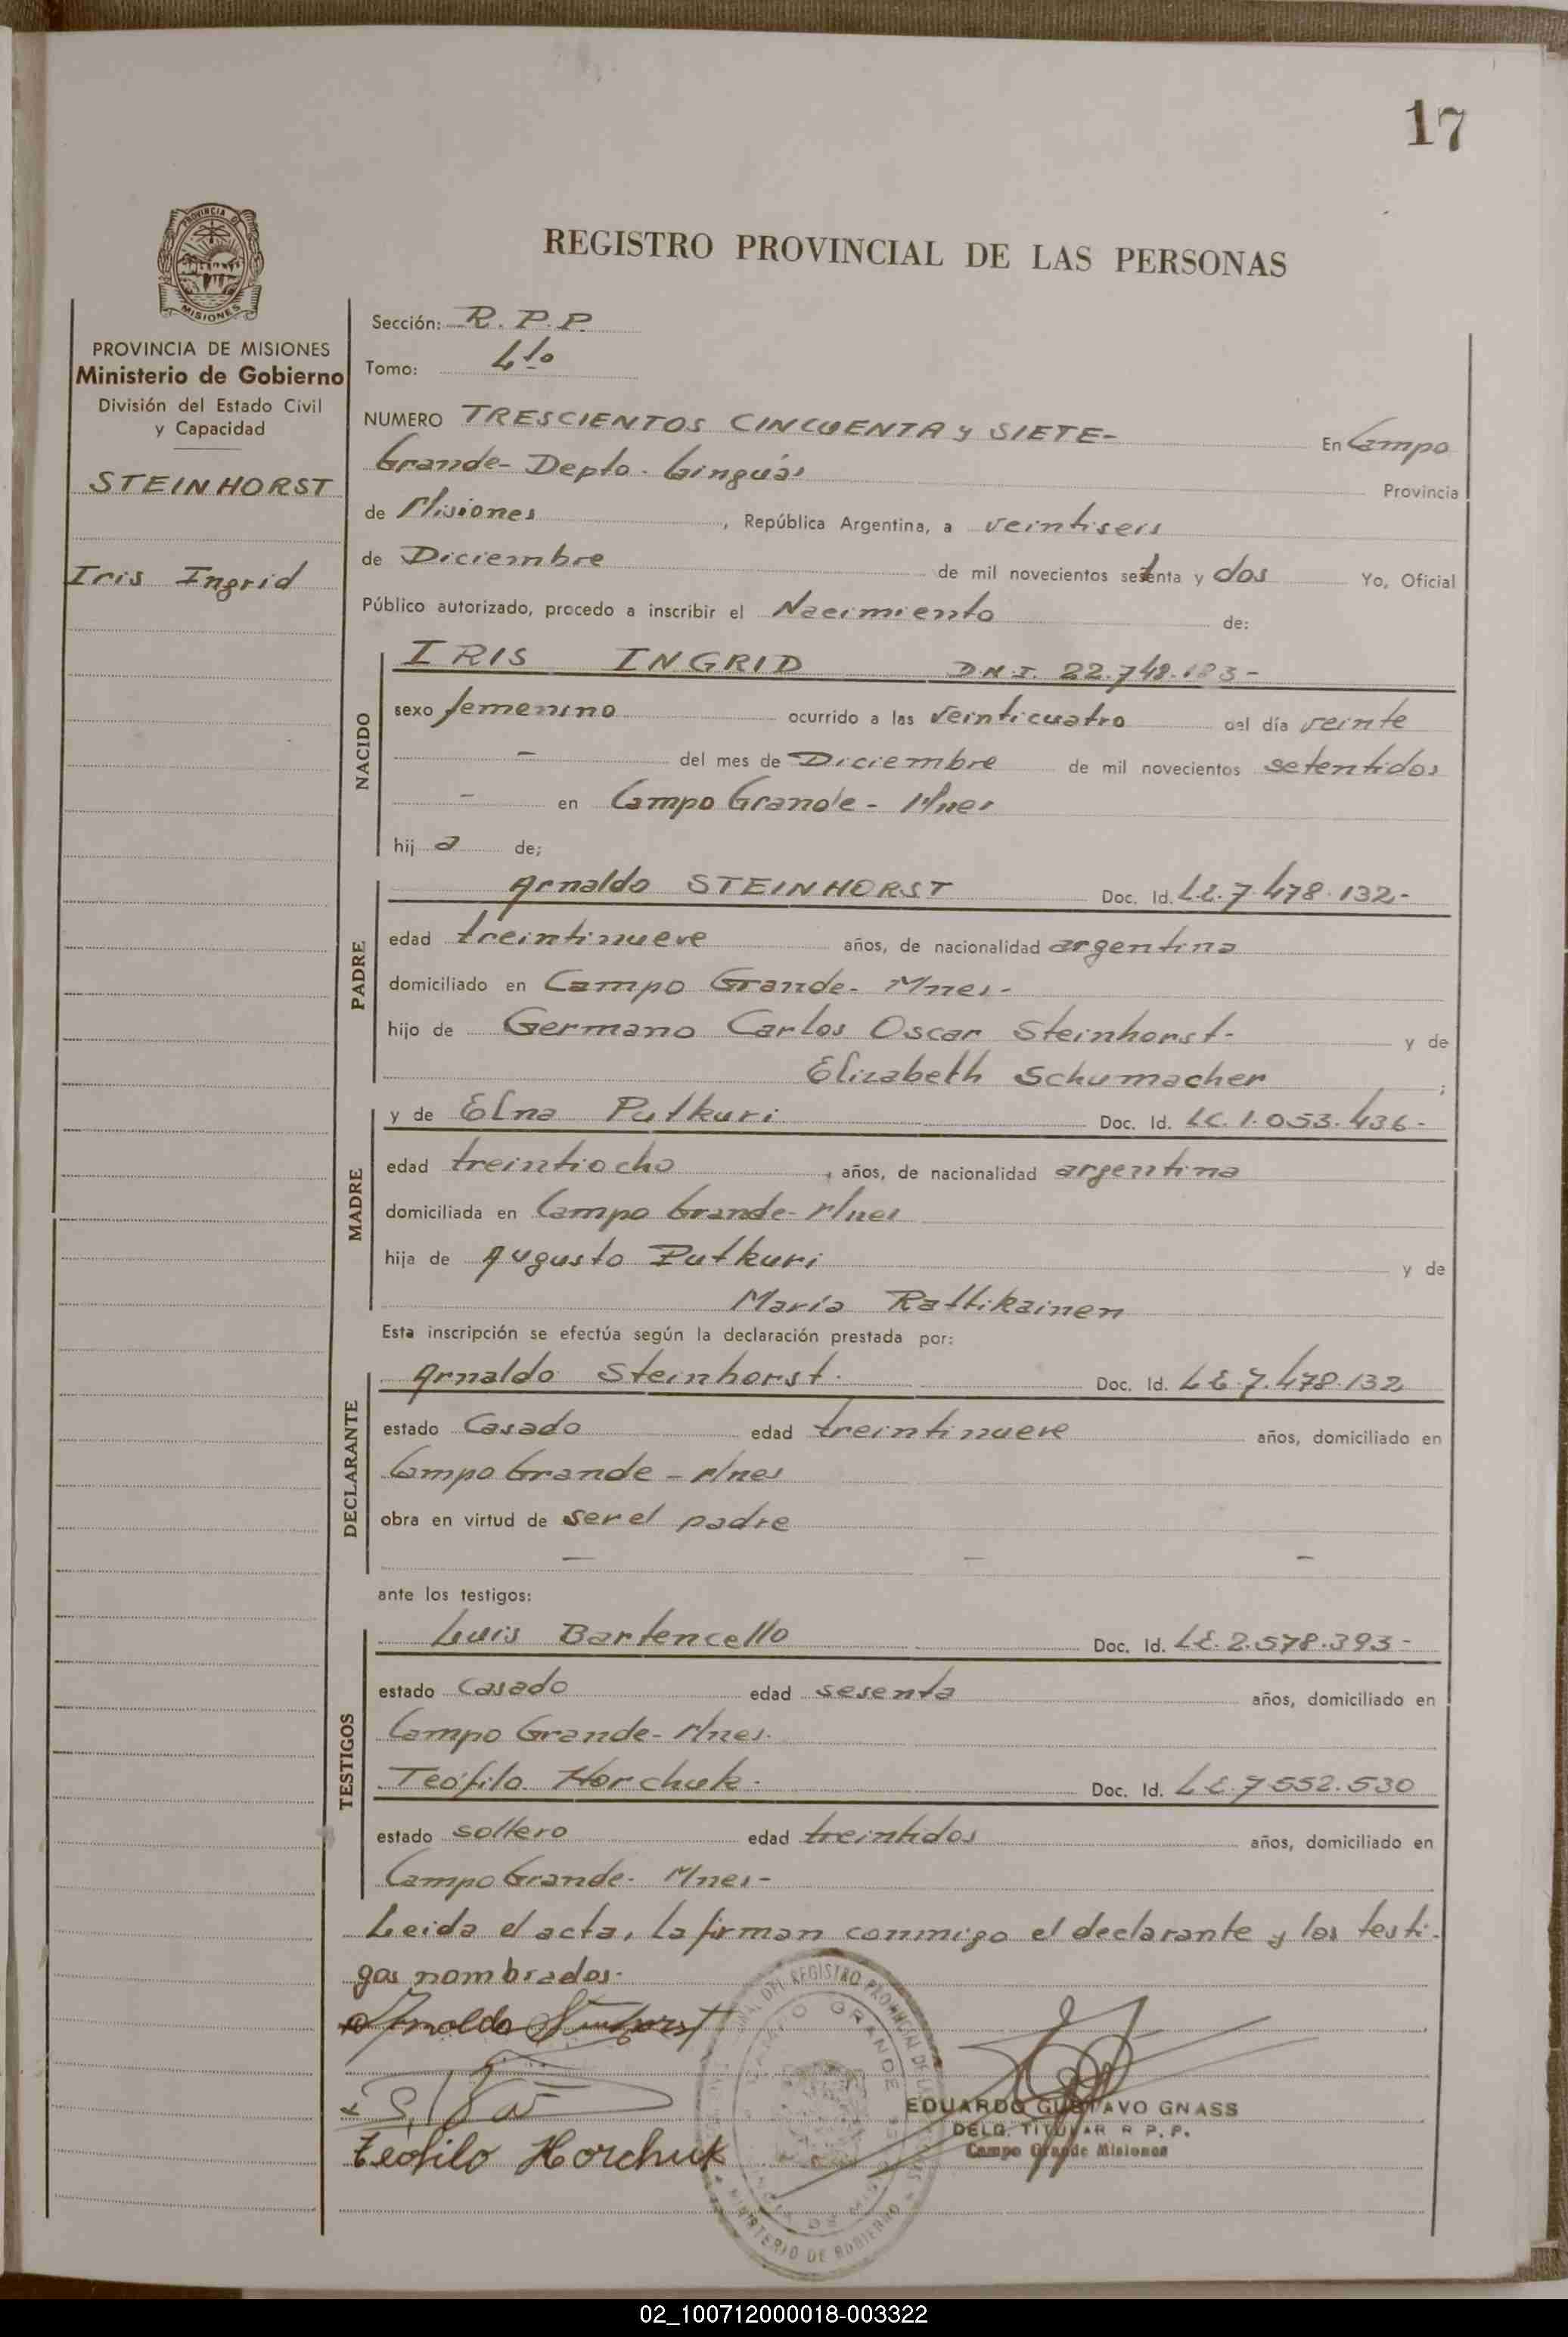 17
PROVINCIA DE
MISIONES
REGISTRO PROVINCIAL DE LAS PERSONAS
PROVINCIA DE MISIONES
Ministerio de Gobierno
División del Estado Civil
y Capacidad
STEINHORST
Iris Ingrid
Sección: R. P. P.
Tomo: 4to
NUMERO TRESCIENTOS CINCUENTA y SIETE- En Campo
Grande- Depto. Ginguás Provincia
de Misiones, República Argentina, a veintiseis
de Diciembre de mil novecientos setenta y dos Yo, Oficial
Público autorizado, procedo a inscribir el Nacimiento de:
NACIDO
IRIS INGRID D.N.I. 22.748.183-
sexo femenino ocurrido a las veinticuatro del día veinte
- del mes de Diciembre de mil novecientos setentidos
- en Campo Grande - Mnes
hij a de;
PADRE
Arnaldo STEINHORST Doc. Id. L.E. 7.478.132-
edad treintinueve años, de nacionalidad argentina
domiciliado en Campo Grande- Mnes-
hijo de Germano Carlos Oscar Steinhorst- y de
Elizabeth Schumacher ;
MADRE
y de Elna Putkuri Doc. Id. LC. 1.053.436-
edad treintiocho, años, de nacionalidad argentina
domiciliada en Campo Grande- Mnes
hija de Augusto Putkuri y de
María Rattikainen
Esta inscripción se efectúa según la declaración prestada por:
DECLARANTE
Arnaldo Steinhorst. Doc. Id. L.E. 7.478.132
estado Casado edad treintinueve años, domiciliado en
Campo Grande - Mnes
obra en virtud de ser el padre
- - -
ante los testigos:
TESTIGOS
Luis Bartencello Doc. Id. L.E. 2.578.393-
estado casado edad sesenta años, domiciliado en
Campo Grande- Mnes.
Teófilo Horchuk. Doc. Id. L.E. 7.552.530
estado soltero edad treintidos años, domiciliado en
Campo Grande- Mnes-
Leida el acta, la firman conmigo el declarante y los testi-
gos nombrados.
Arnoldo Steinhorst
Teofilo Horchuk
DEL REGISTRO PROVINCIAL DE LAS
CAMPO GRANDE
MINISTERIO DE GOBIERNO
EDUARDO GUSTAVO GNASS
DELG. TITULAR R P. P.
Campo Grande Misiones
02_100712000018-003322